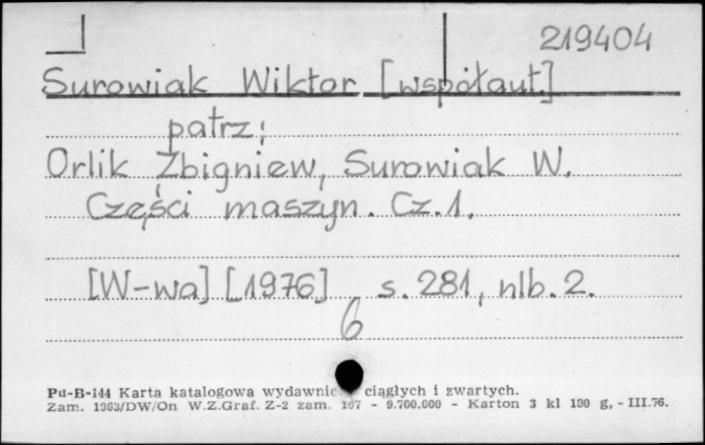 219404
Surowiak Wiktor [współaut.]
patrz:
Orlik Zbigniew, Surowiak W.
Części maszyn. Cz.1.
[W-wa] [1976] s. 281, nlb. 2.
6
Pu-B-144 Karta katalogowa ciągłych i zwartych.
Zam. 1963/DW/On W.Z.Graf. Z-2 zam. 167 - 9.700.000 - Karton 3 kl 190 g, - III.76.